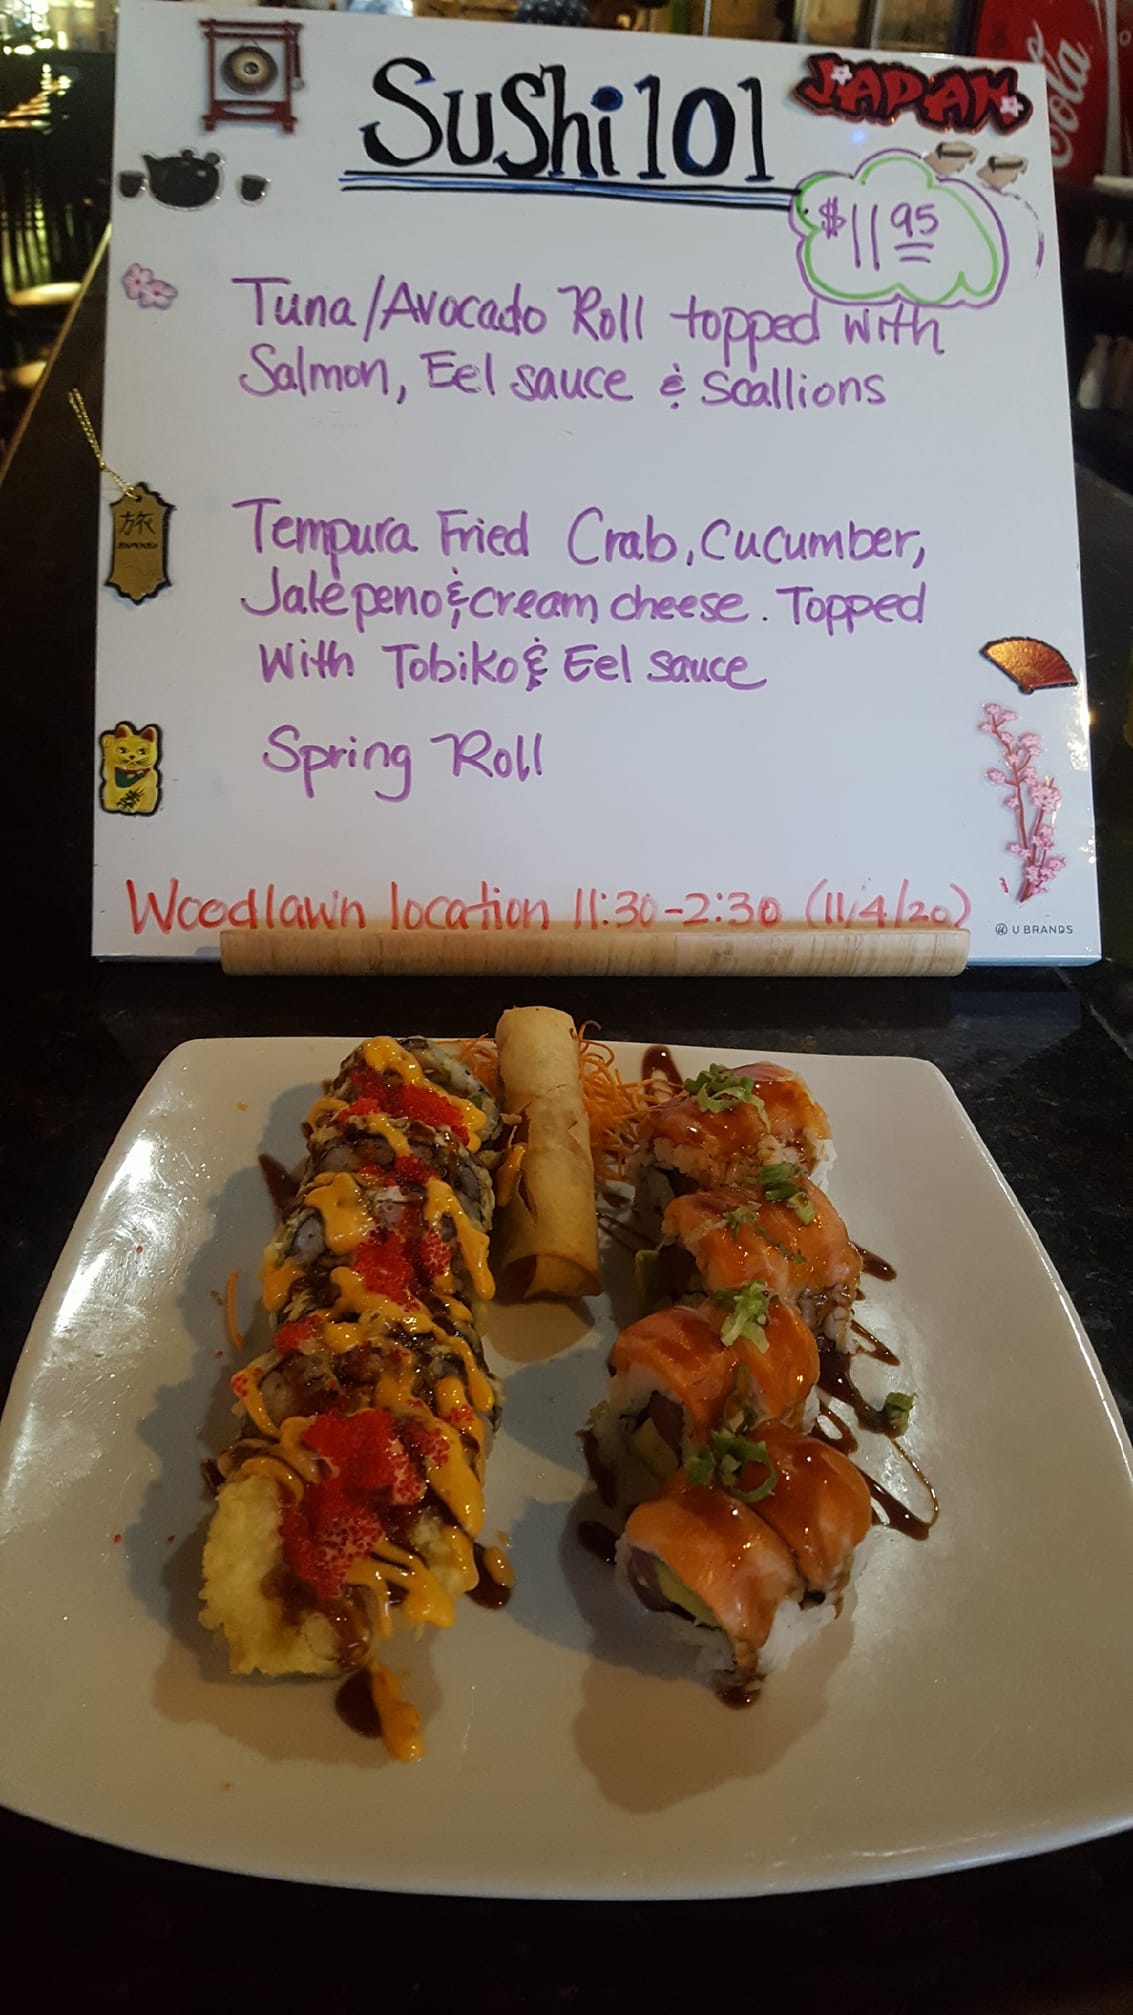 Sushi 101
JAPAN
Cola
$11 95
Tuna/Avocado Roll topped with
Salmon, Eel sauce & Scallions
Tempura Fried Crab, Cucumber,
Jalepeno & cream cheese. Topped
With Tobiko & Eel sauce
旅
Spring Roll
Woodlawn location 11:30-2:30 (11/4/20)
U BRANDS